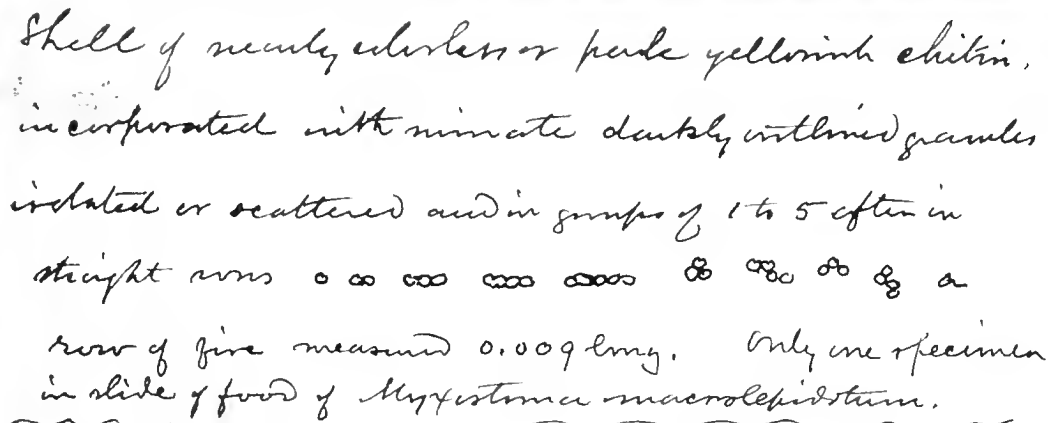 Shell of nearly colorless or pale yellowish chitin,
incorporated with minute darkly outlined granules
isolated or scattered and in groups of 1 to 5 often in
straight rows a
row of five measured 0.009 long. Only one specimen
in slide of food of Myxostoma macrolepidotum.